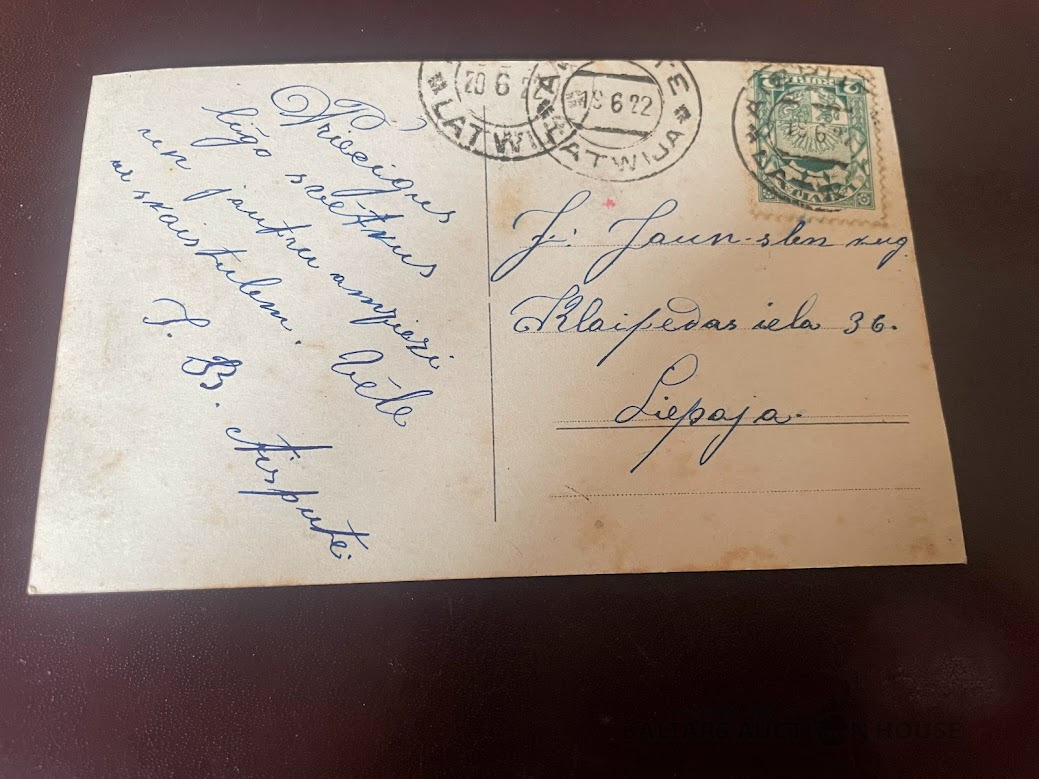 Priecigus
līgo svētkus
un jautru
ar skaistulem. vēle
J. B. Aizputē.
20 6 22
LATWIJA
19 6 22
LATWIJA
2
J. Jaun-slen kug.
Klaipedas iela 36.
Liepaja.
BALTARS AUCTION HOUSE